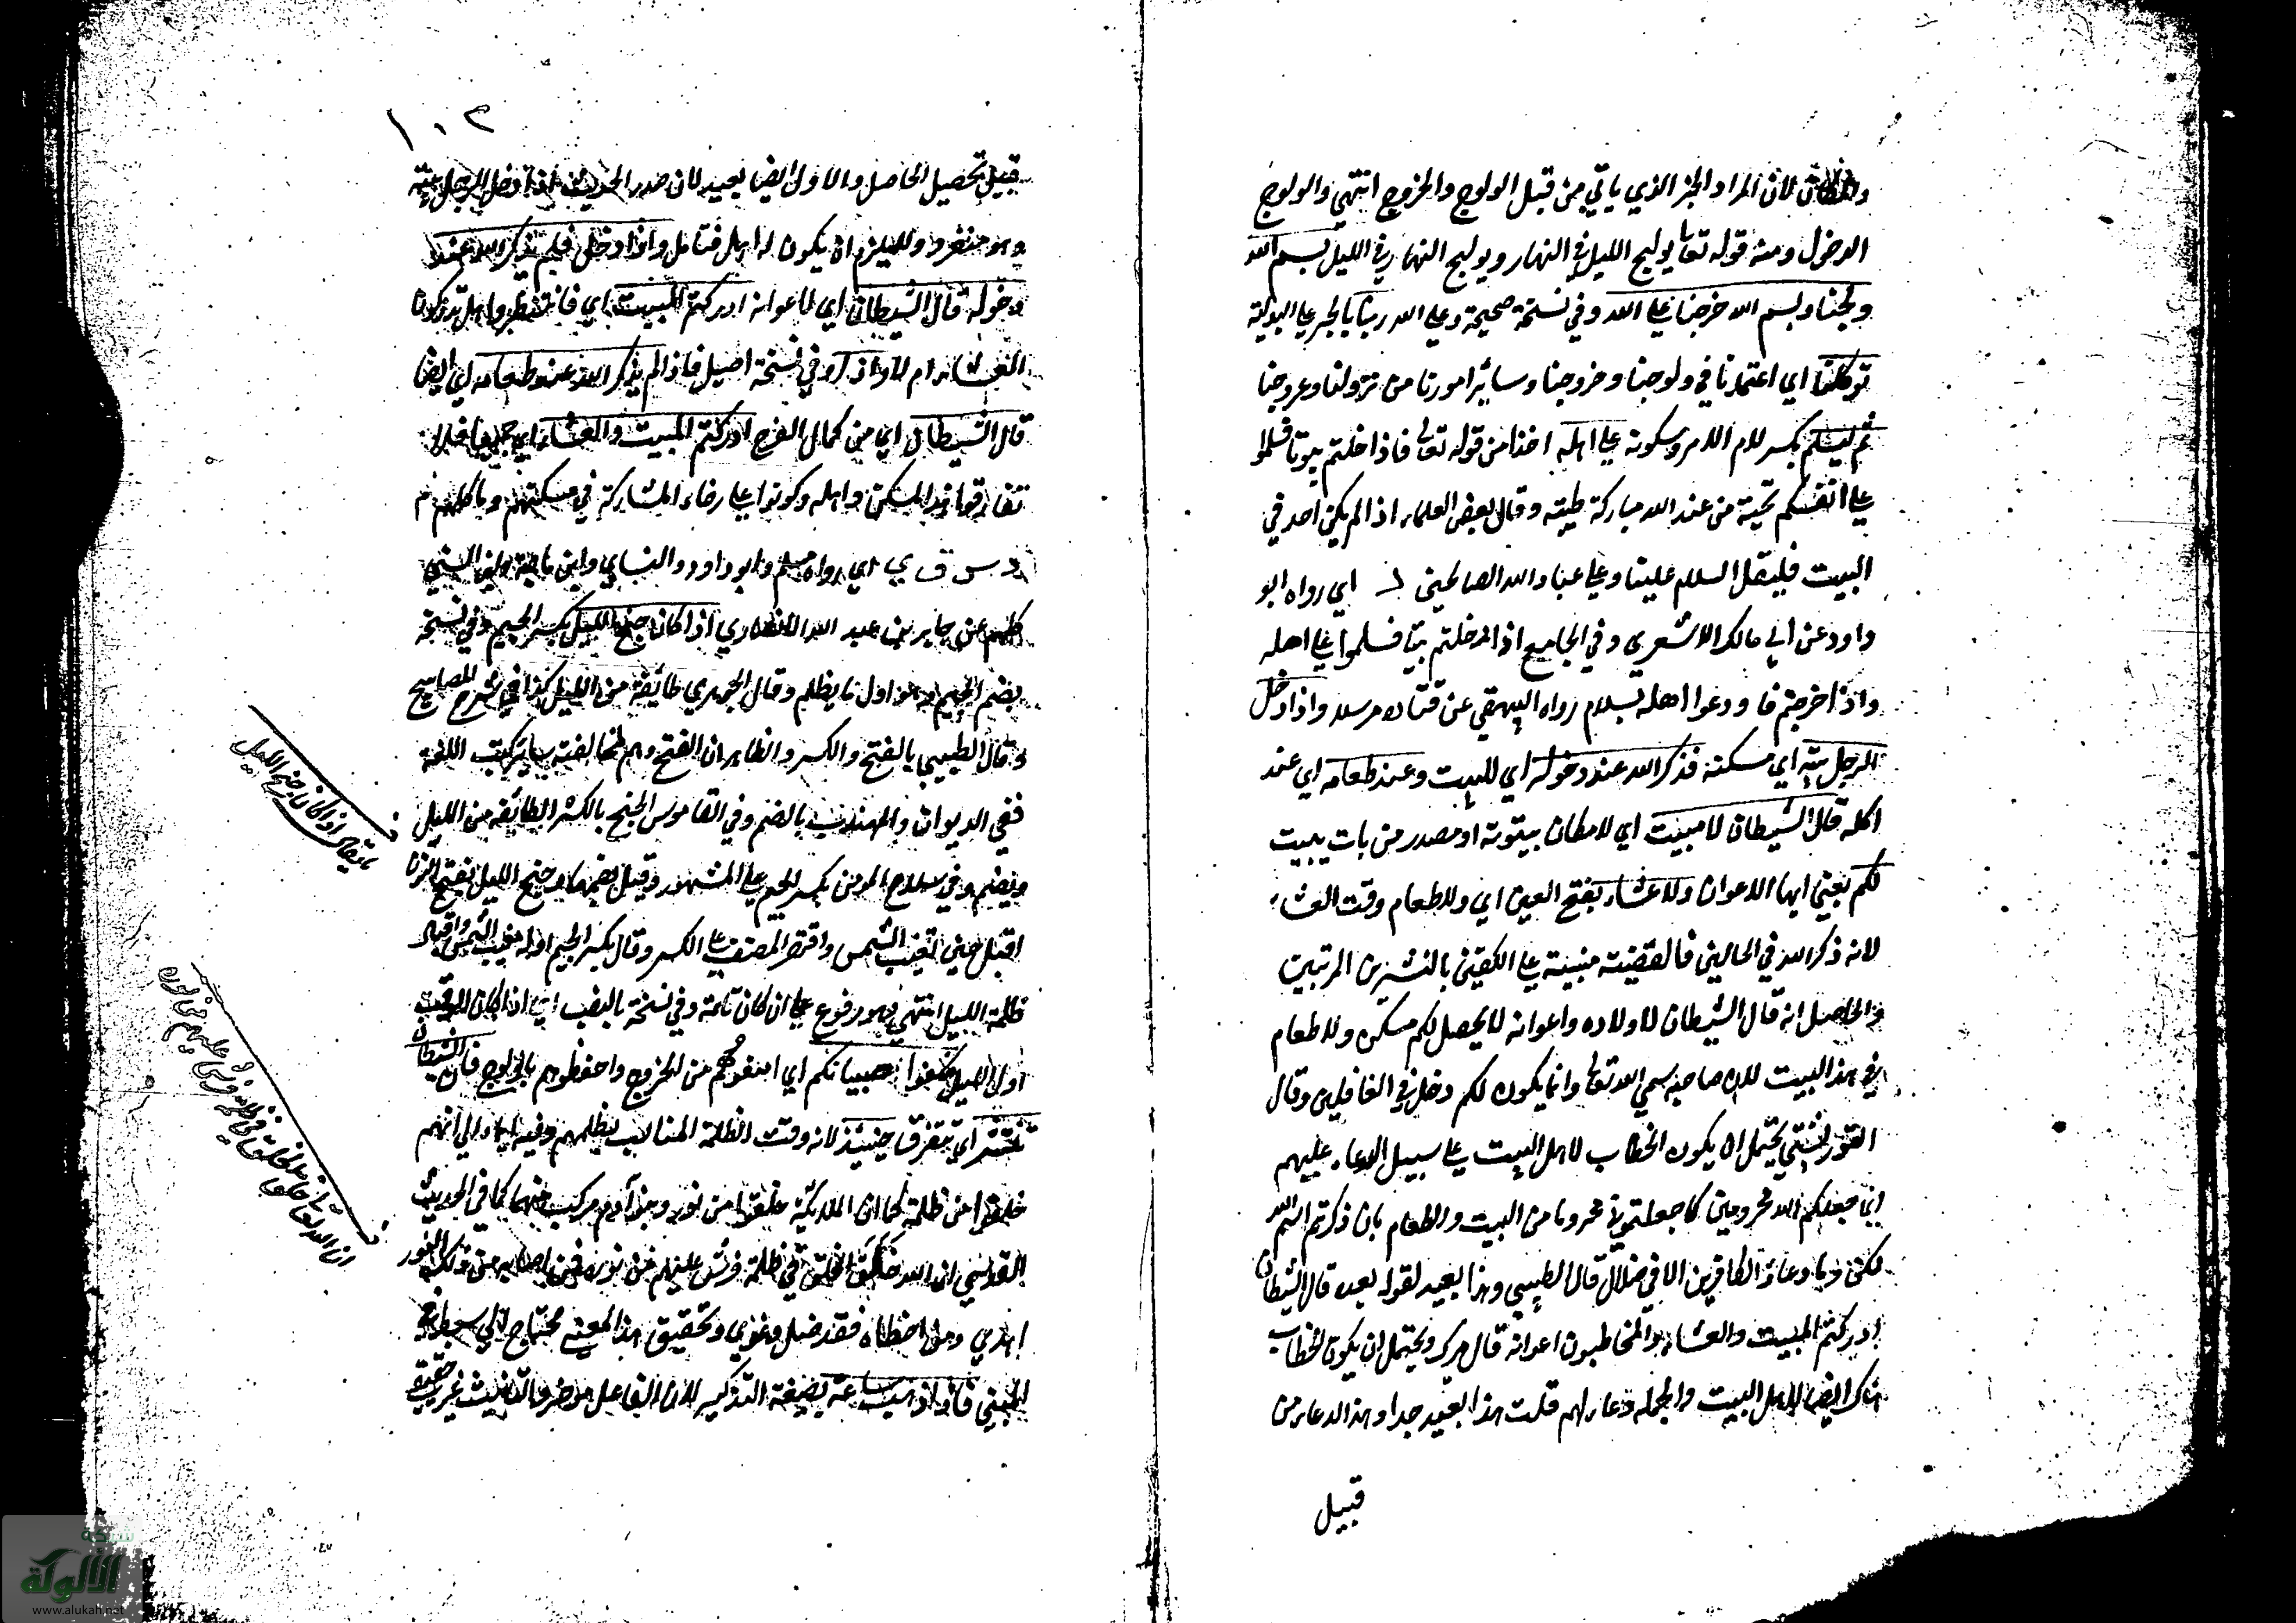 لان المراد الخبر الذي ياتي من قبل الولوج والخروج انتهي والولوج
الدخول ومنه قوله تعا يولج الليل في النهار ويولج النهار في الليل بسم الله
ولجنا وبسم الله خرجنا علي الله وفي نسخة صحيحة وعلي الله ربنا بالجر علي البدلية
توكلنا اي اعتمدنا في ولوجنا وخروجنا وسائر امورنا من نزولنا وعروجنا
ثم ليسلم بكسر لام الامر وسكونه علي اهله اخذا من قوله تعالي فاذا دخلتم بيوتا فسلموا
علي انفسكم تحية من عند الله مباركة طيبه وقال بعض العلماء اذا لم يكن احد في
البيت فليقل السلام علينا وعلي عباد الله الصالحين د اي رواه ابو
داود عن ابي مالك الاشعري وفي الجامع اذا دخلتم بيتا فسلموا علي اهله
واذا خرجتم فاودعوا اهله بسلام رواه البيهقي عن قتاده مرسلا واذا دخل
الرجل بيته اي مسكنه فذكر الله عند دخوله اي للبيت وعند طعامه اي عند
اكله قال الشيطان لا مبيت اي لا مكان بيتوتة او مصدر من بات يبيت
لكم يعني ايها الاعوان ولا عشاء بفتح العين اي ولا طعام وقت العشاء
لانه ذكر الله في الحالين فالقضية مبنية علي الكفتين بالنشرين المرتبين
والحاصل انه قال الشيطان لاولاده واعوانه لا يحصل لكم مسكن ولا طعام
في هذا البيت لان صاحبه سمي الله تعالي وانما يكون لكم دخل في الغافلين وقال
التوربشتي يحتمل ان يكون الخطاب لاهل البيت علي سبيل الدعاء عليهم
اي جعلكم الله محرومين كما جعلتموني محروما من البيت والطعام بان ذكرتم اسم الله
لكن وما دعاء الكافرين الا في ضلال قال الطيبي وهذا بعيد لقوله بعده قال الشيطان
ادركتم المبيت والعشاء والمخاطبون اعوانه قال ميرك ويحتمل ان يكون الخطاب
هناك ايضا لاهل البيت والجملة دعاء لهم قلت هذا بعيد جدا وهذا الدعاء من
قبيل
١٠٢
قبيل تحصيل الحاصل والاول ايضا بعيد لان صدر الحديث اذا دخل الرجل بيته
وهو منفرد ولا يلزم ان يكون له اهل فتامل واذا دخل فلم يذكر الله عند
دخوله قال الشيطان اي لاعوانه ادركتم المبيت اي فانتظروا هل تدركون
العشاء ام لا واذا وفي نسخة اصيل فاذا لم يذكر الله عند طعامه اي ايضا
قال الشيطان اي من كمال الفرح ادركتم المبيت والعشاء اي جميعا فلا
تفارقوا هذا المسكن واهله وكونوا علي رجاء المشاركة في مسكنهم وماكلهم م
د س ق ي اي رواه مسلم وابو داود والنساي وابن ماجة وابن السني
كلهم عن جابر بن عبد الله الانصاري اذا كان جنح الليل بكسر الجيم وفي نسخة
بضم الجيم وهو اول ما يظلم وقال الجوهري طائفة من الليل كذا في شرح المصابيح
وقال الطيبي بالفتح والكسر والظاهر ان الفتح وهم لمخالفته سائر كتب اللغة
ففي الديوان والمهذب بالضم وفي القاموس الجنح بالكسر الطائفة من الليل
ويضم وفي سلاح المومن بكسر الجيم علي المشهور وقيل بضمها وجنح الليل بفتح النون
اقبل حين تغيب الشمس واقتصر المصنف علي الكسر وقال بكسر الجيم اوله مغيب الشمس واقبال
ظلمة الليل انتهي وهو مرفوع علي ان كان تامة وفي نسخة بالنصب اي اذا كان الوقت
اول الليل فكفوا صبيانكم اي امنعوهم من الخروج واحفظوهم بالولوج فان الشيطان
تنتشر اي تتفرق حينئذ لانه وقت الظلمة المناسب لظلمهم وفيه ايماء الي انهم
خلقوا من ظلمة كما ان الملائكة خلقوا من نور وبنو آدم مركب منهما كما في الحديث
القدسي ان الله خلق الخلق في ظلمة فرش عليهم من نوره فمن اصابه من ذلك النور
اهتدي ومن اخطاه فقد ضل وغوي وتحقيق هذا المعني محتاج الي بسط في
المبني فاذا ذهب ساعة بصيغة التذكير لان الفاعل مؤخر والتانيث غير حقيقي
ما يقال اذا كان جنح الليل